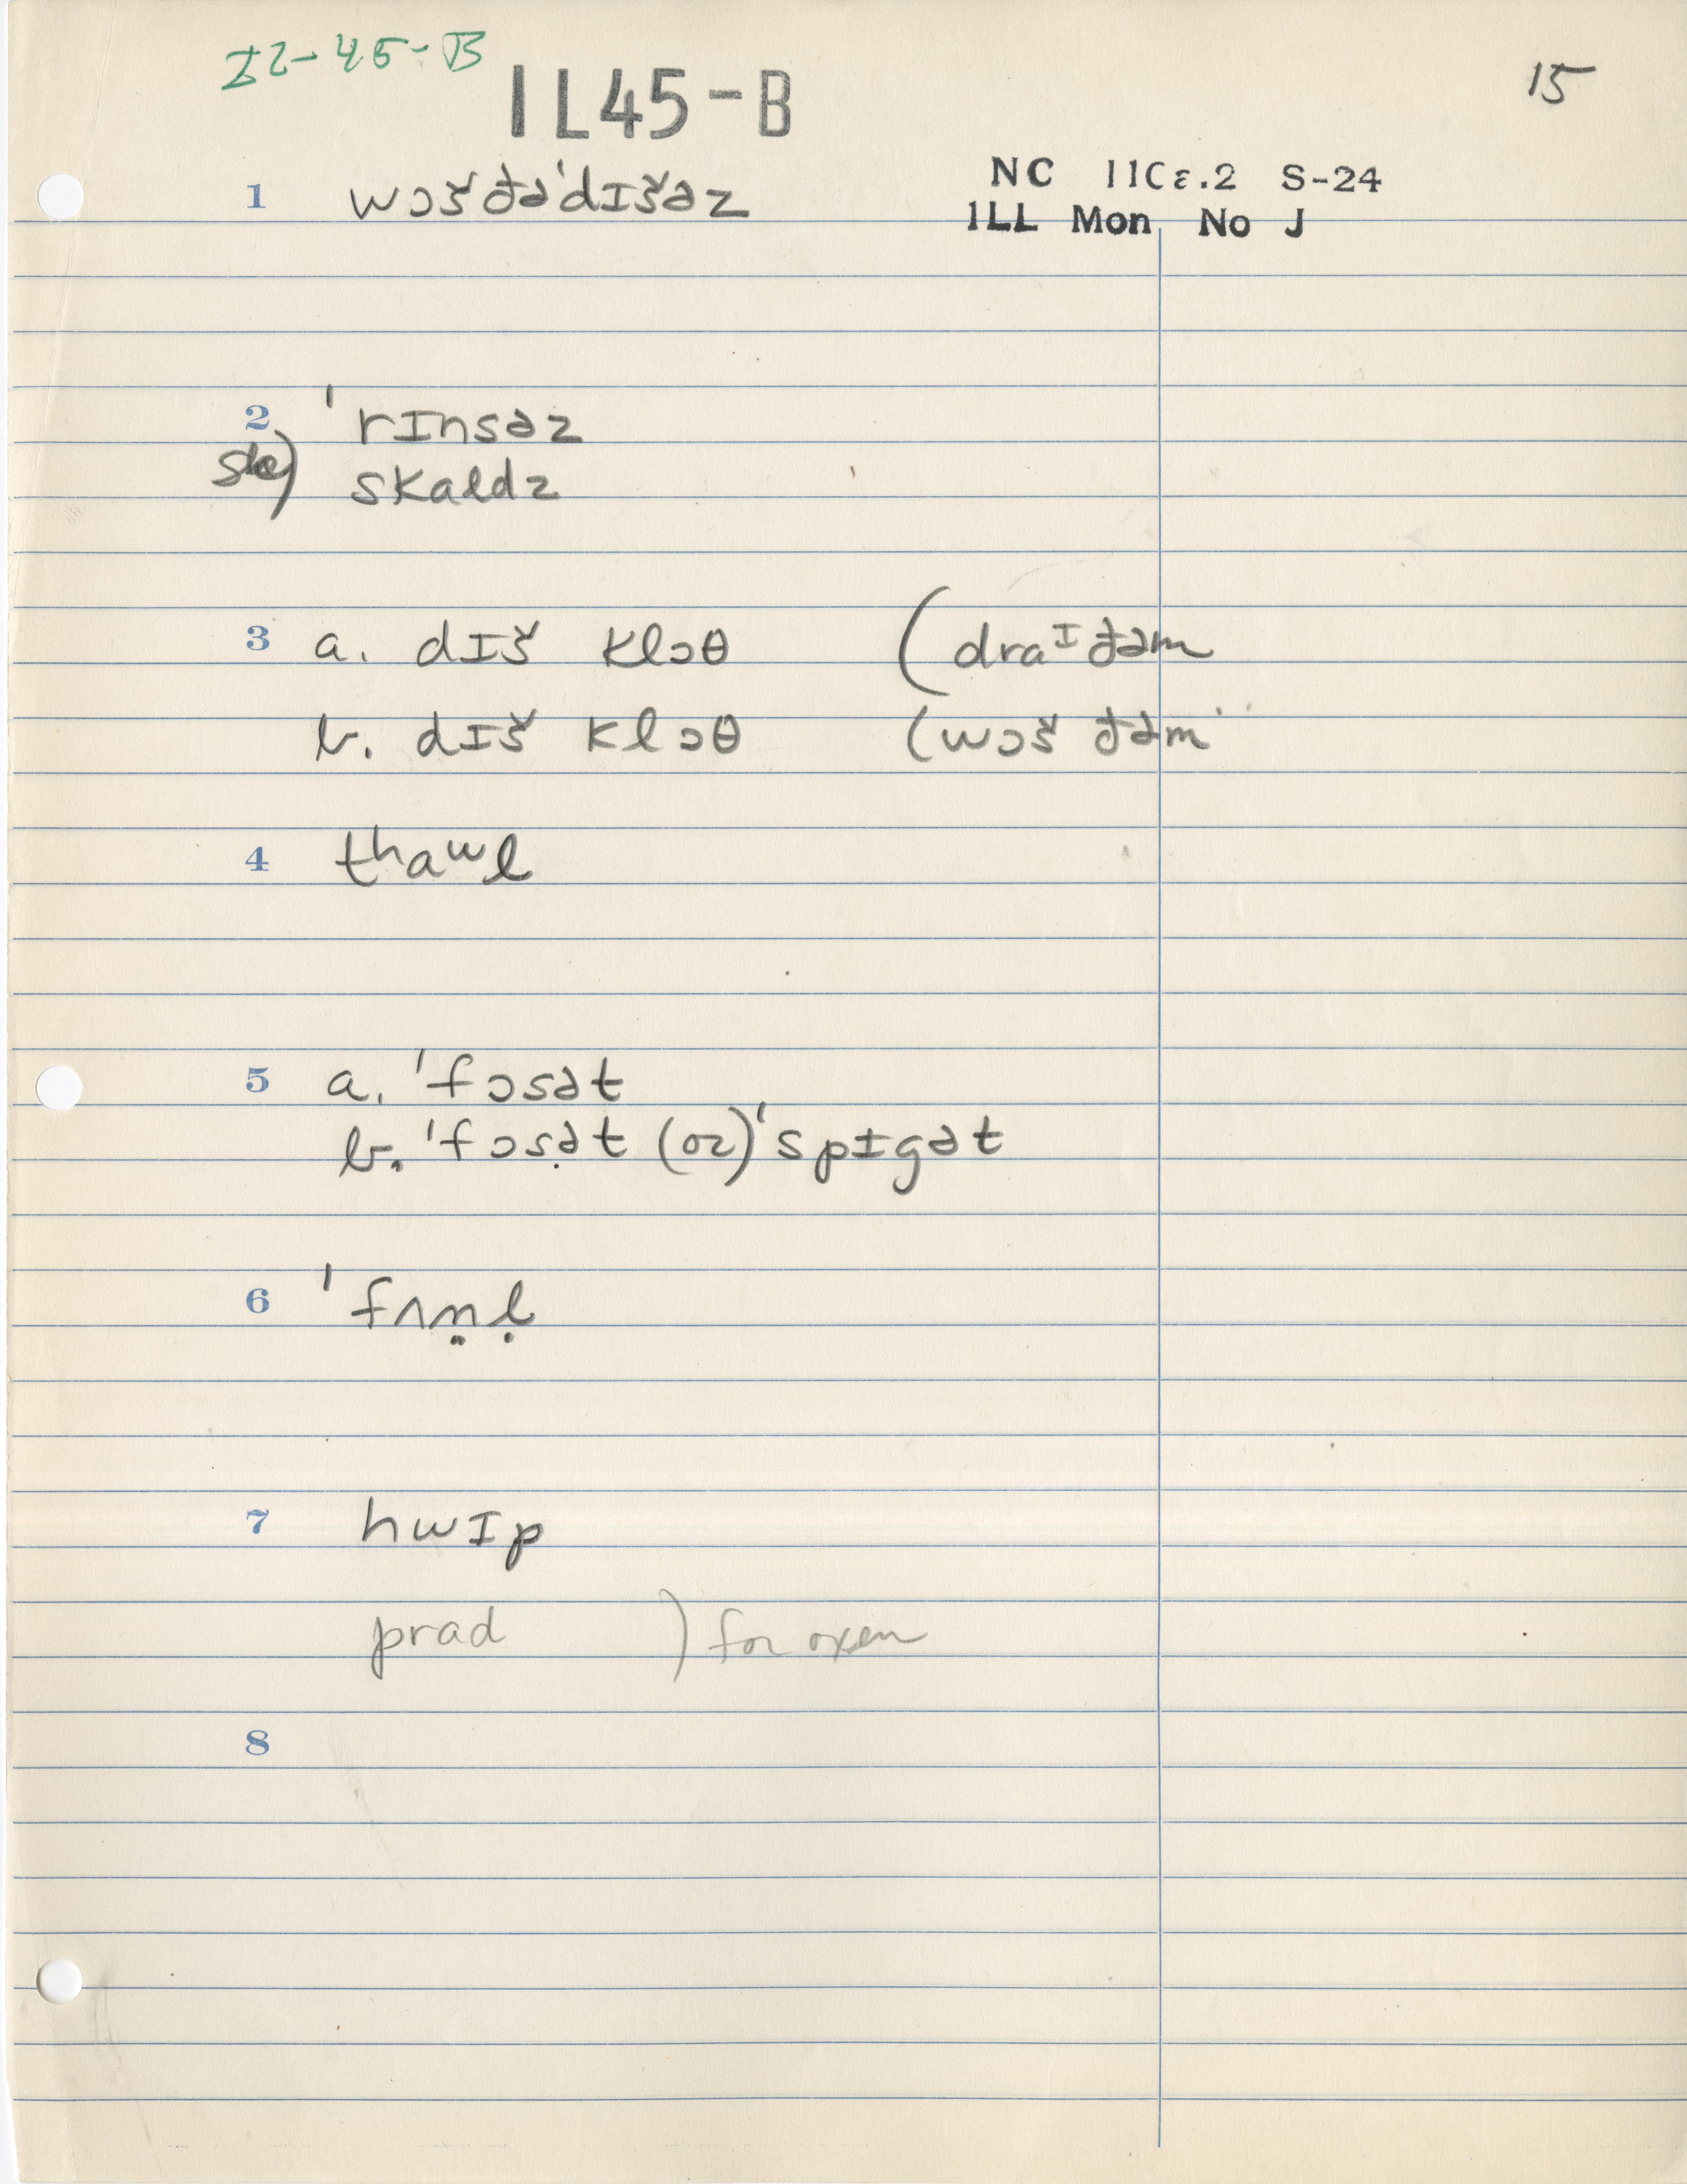 I2-45-B
IL45-B
15
NC IICε.2 S-24
ILL Mon No J
1 wɔšđə'dɪšəz
2 'rɪnsəz
skaldz
3 a. dɪš klɔθ (draᶦđəm
b. dɪš klɔθ (wɔš đəm
4 tʰaʷl
5 a. 'fɔsət
b. 'fɔsət (or) 'spɪgət
6 'fʌn̤ḷ
7 hwɪp
prad ) for oxen
8